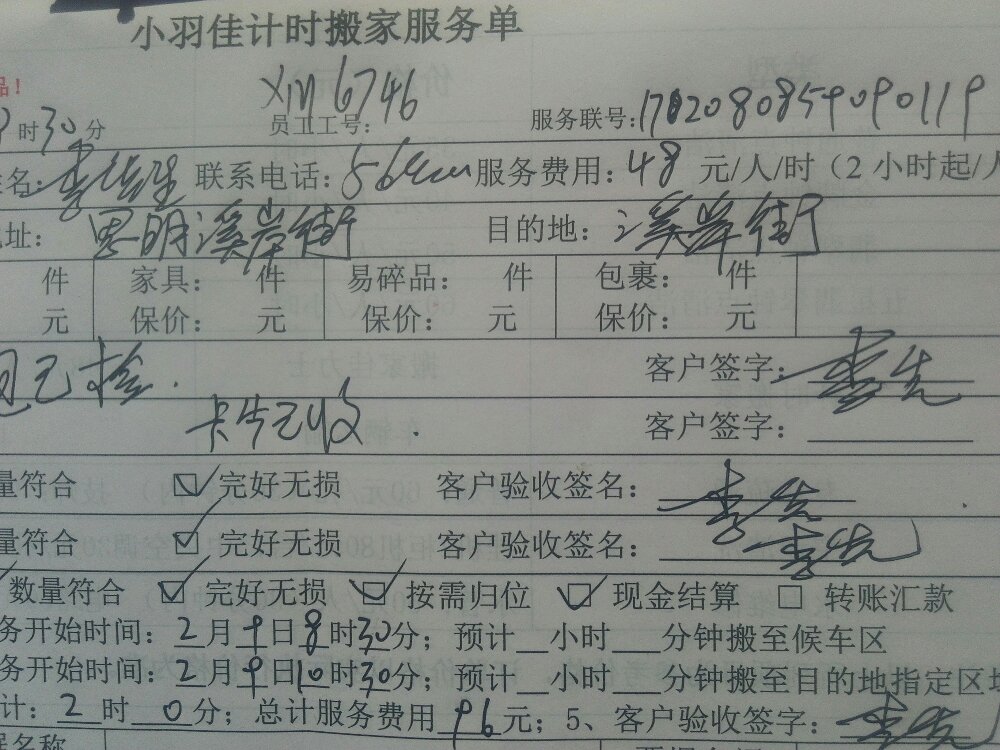 小羽佳计时搬家服务单
品!
时30分 员工工号: XM6746 服务联号:1702080859090119
姓名: 联系电话: 服务费用:48 元/人/时(2 小时起/人
地址: 思明溪岸街 目的地: 溪岸街
件 家具: 件 易碎品: 件 包裹: 件
元 保价: 元 保价: 元 保价: 元
已检. 客户签字:李先
卡片已收. 客户签字:
量符合 ☑完好无损 客户验收签名: 李先
量符合 ☑完好无损 客户验收签名: 李先
数量符合 ☑完好无损 ☑按需归位 ☑现金结算 □ 转账汇款
务开始时间:2月9日8时30分;预计__小时___分钟搬至候车区
务开始时间:2月9日10时30分;预计__小时___分钟搬至目的地指定区域
计:2时0分;总计服务费用96元;5、客户验收签字:李先